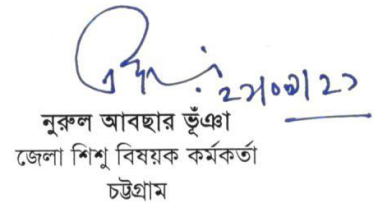 নুরুল আবছার ভূঁঞা
জেলা শিশু বিষয়ক কর্মকর্তা
চট্টগ্রাম